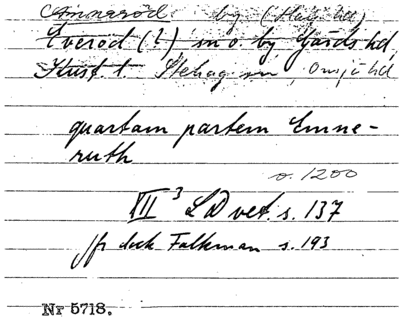 Annaröd by (Hall. hd)
Everöd (?) sn o. by Gärds hd
t. Stehag sn, Onsjö hd
quartam partem Emne-
ruth
o. 1200
VII 3 LD vet. s. 137
Jfr dock Falkman s. 193
Nr 5718.